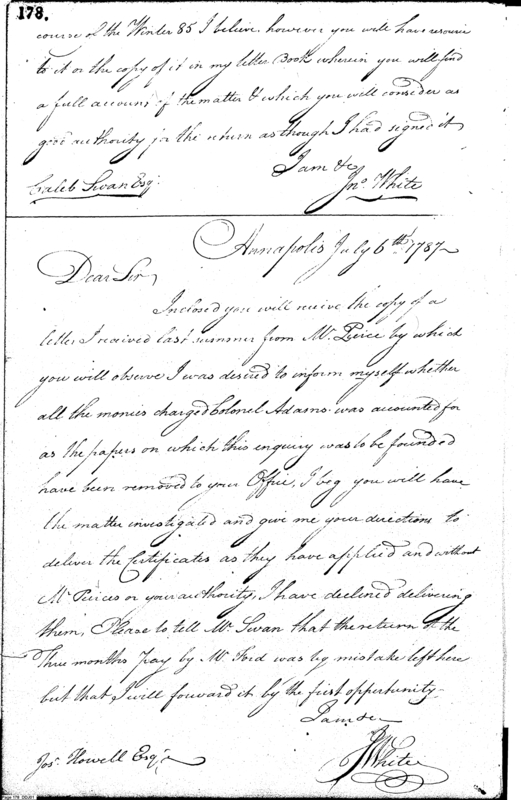 178.
course of the Winter 85 I believe. however you will have resource
to it or the copy of it in my letter Book wherein you will find
a full account of the matter & which you will consider as
good authority for the return as though I had signed it
I am &c
Caleb Swan Esqr.
Jno. White
Annapolis July 6th. 1787
Dear Sir,
Inclosed you will receive the copy of a
letter I received last summer from Mr. Peirce by which
you will observe I was desired to inform myself whether
all the monies charged Colonel Adams was accounted for
as the papers on which this enquiry was to be founded
have been removed to your Office, I beg you will have
the matter investigated and give me your directions to
deliver the Certificates as they have applied and without
Mr Peirces or your authority, I have declined delivering
them, Please to tell Mr. Swan that the return of the
Three months Pay by Mr. Ford was by mistake left here
but that I will forward it by the first opportunity.
I am &c
Jos. Howell Esqr.
JWhite